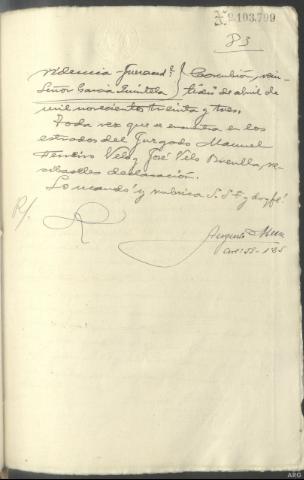 2.103.799
83
Providencia Juez and.l } Corcubión, vein-
Señor García Quintela } tidós de abril de
mil novecientos treinta y tres.
Toda vez que se encuentra en los
estrados del Juzgado Manuel
Ferreiro Velo y José Velo Brenlla, re-
cíbaseles declaración.
Lo mandó y rubrica S.Sª y doy fé.
R/.
ARG